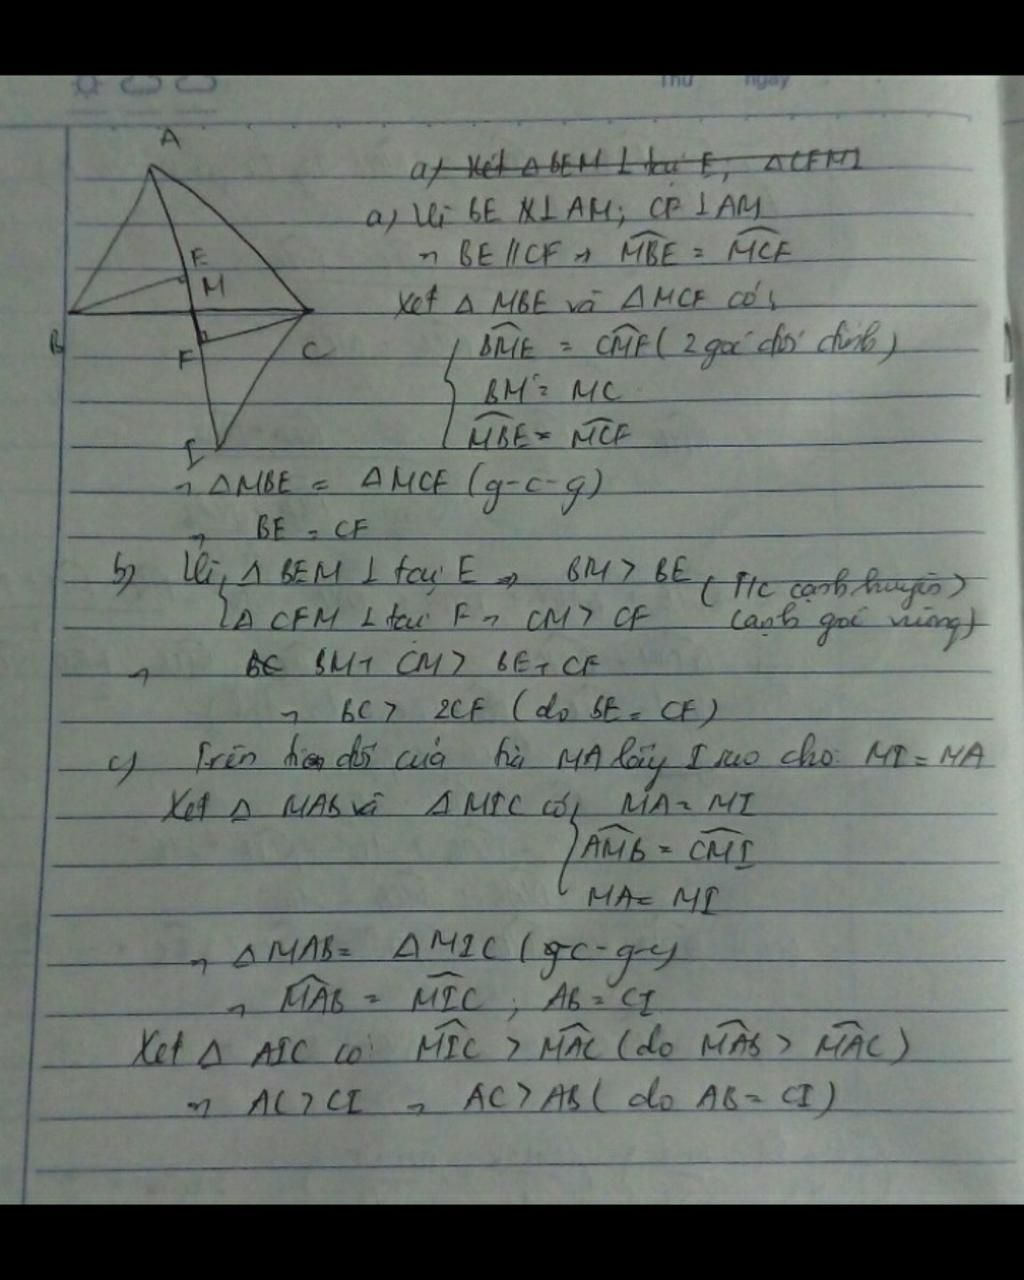 Thứ ngày
A
a) Xét Δ BEM ⊥ tại E; Δ CFM ⊥
a) Vì BE ⊥ AM; CF ⊥ AM
→ BE // CF → MBE = MCF
E
M
Xét Δ MBE và Δ MCF có:
B
F
C
BME = CMF (2 góc đối đỉnh)
BM = MC
MBE = MCF
I
→ Δ MBE = Δ MCF (g-c-g)
→ BE = CF
b) Vì Δ BEM ⊥ tại E → BM > BE (t/c cạnh huyền >
Δ CFM ⊥ tại F → CM > CF cạnh góc vuông)
→ BM + CM > BE + CF
→ BC > 2CF (do BE = CF)
c) Trên tia đối của tia MA lấy I sao cho: MI = MA
Xét Δ MAB và Δ MIC có: MA = MI
AMB = CMI
MA = MI
→ Δ MAB = Δ MIC (c-g-c)
→ MAB = MIC ; AB = CI
Xét Δ AIC có: MIC > MAC (do MAB > MAC)
→ AC > CI → AC > AB (do AB = CI)